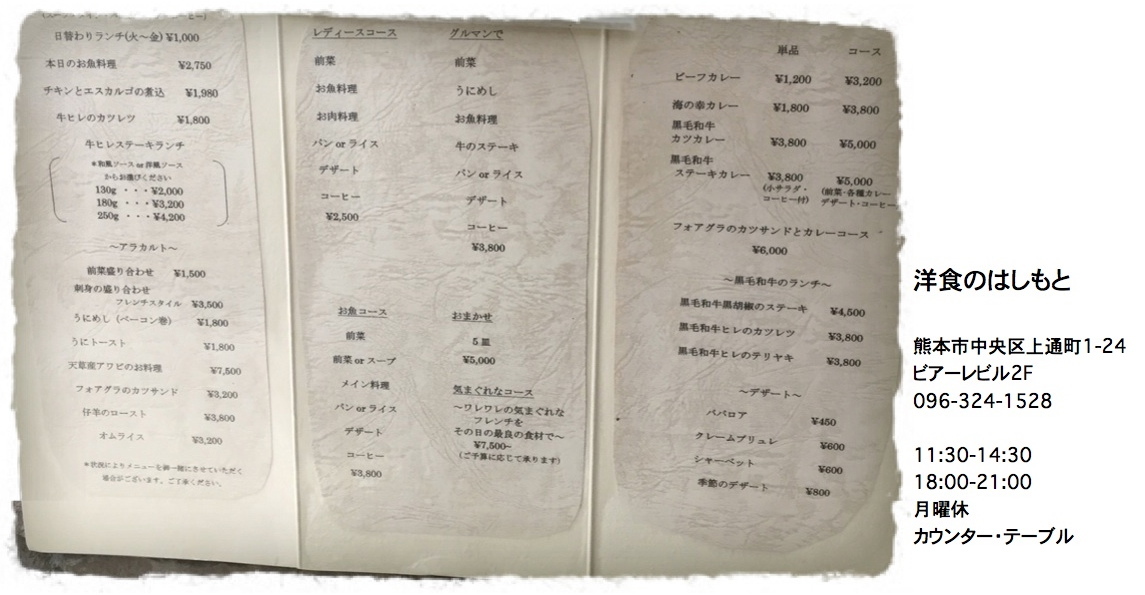 日替わりランチ(火～金) ¥1,000
本日のお魚料理 ¥2,750
チキンとエスカルゴの煮込 ¥1,980
牛ヒレのカツレツ ¥1,800
牛ヒレステーキランチ
＊和風ソース or 洋風ソース
からお選びください
130g ・・・¥2,000
180g ・・・¥3,200
250g ・・・¥4,200
～アラカルト～
前菜盛り合わせ ¥1,500
刺身の盛り合わせ
フレンチスタイル ¥3,500
うにめし（ベーコン巻） ¥1,800
うにトースト ¥1,800
天草産アワビのお料理 ¥7,500
フォアグラのカツサンド ¥3,200
仔羊のロースト ¥3,800
オムライス ¥3,200
＊状況によりメニューを御一緒にさせていただく
場合がございます。ご了承ください。
レディースコース
前菜
お魚料理
お肉料理
パン or ライス
デザート
コーヒー
¥2,500
グルマンで
前菜
うにめし
お魚料理
牛のステーキ
パン or ライス
デザート
コーヒー
¥3,800
お魚コース
前菜
前菜 or スープ
メイン料理
パン or ライス
デザート
コーヒー
¥3,800
おまかせ
５皿
¥5,000
気まぐれなコース
～ワレワレの気まぐれな
フレンチを
その日の最良の食材で～
¥7,500~
（ご予算に応じて承ります）
単品 コース
ビーフカレー ¥1,200 ¥3,200
海の幸カレー ¥1,800 ¥3,800
黒毛和牛
カツカレー ¥3,800 ¥5,000
黒毛和牛
ステーキカレー ¥3,800 ¥5,000
(小サラダ・ (前菜・各種カレー
コーヒー付) デザート・コーヒー
フォアグラのカツサンドとカレーコース
¥6,000
～黒毛和牛のランチ～
黒毛和牛黒胡椒のステーキ ¥4,500
黒毛和牛ヒレのカツレツ ¥3,800
黒毛和牛ヒレのテリヤキ ¥3,800
～デザート～
ババロア ¥450
クレームブリュレ ¥600
シャーベット ¥600
季節のデザート ¥800
洋食のはしもと
熊本市中央区上通町1-24
ビアーレビル2F
096-324-1528
11:30-14:30
18:00-21:00
月曜休
カウンター・テーブル